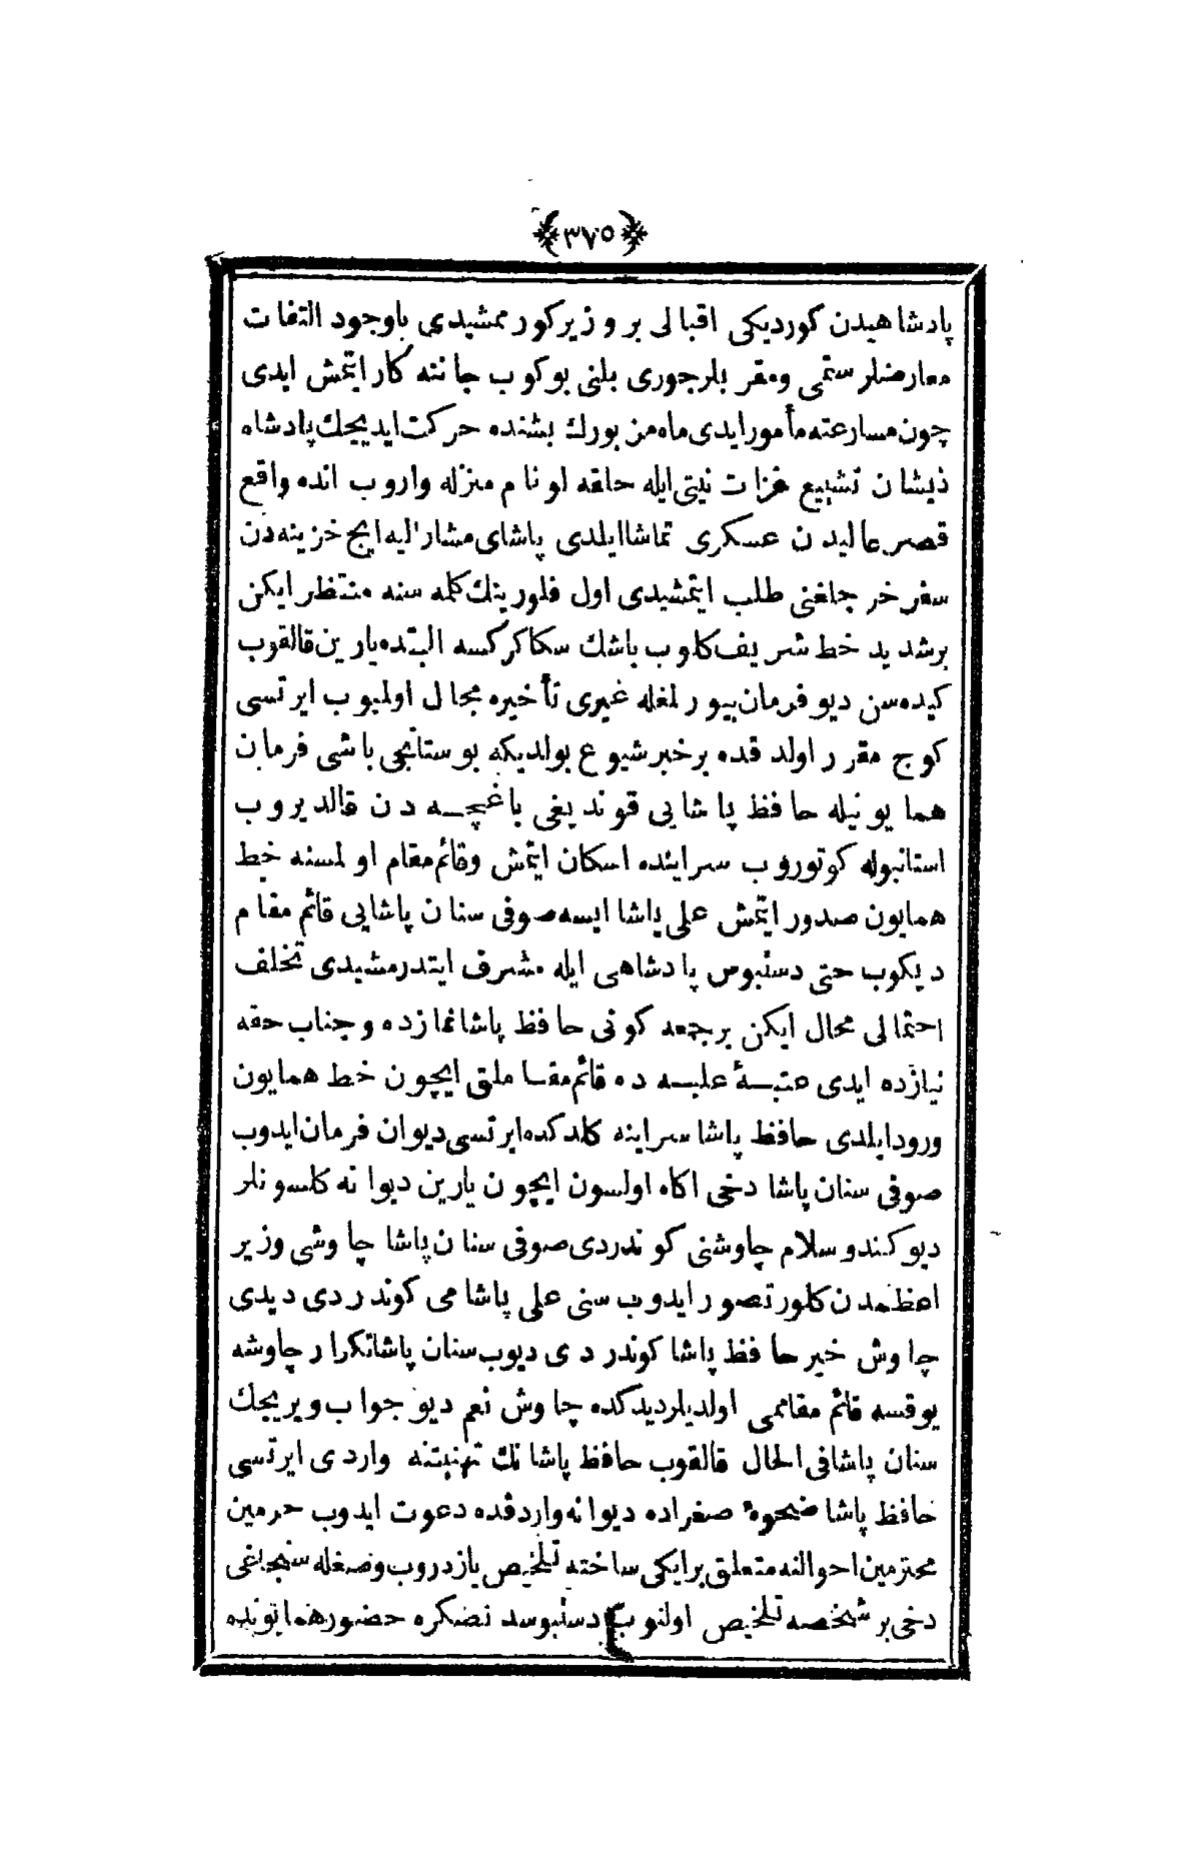 ﴿٣٧٥﴾
پادشاهيدن كورديكى اقبالى بر وزير كورممشيدى باوجود التفات
معارضلر ستمى ومقربلر جورى بلنى بوكوب جاننه كار ايتمش ايدى
چون مسارعته مأمور ايدى ماه مزبورك بشنده حركت ايديجك پادشاه
ذيشان تشييع غزات نيتى ايله حلقه لونام منزله واروب انده واقع
قصر عاليدن عسكرى تماشا ايلدى پاشاى مشار اليه ايچ خزينه دن
سفر خرجلغنى طلب ايتمشيدى اول فلورينك كلمه سنه منتظر ايكن
بر شديد خط شريف كلوب باشك سكا كركسه البتده يارين قالقوب
كيده سن ديو فرمان بيورلمغله غيرى تأخيره مجال اولميوب ايرتسى
كوچ مقرر اولدقده بر خبر شيوع بولديكه بوستانجى باشى فرمان
همايونيله حافظ پاشايى قونديغى باغچه دن قالديروب
استانبوله كوتوروب سراينده اسكان ايتمش وقائم مقام اولمسنه خط
همايون صدور ايتمش على پاشا ايسه صوفى سنان پاشايى قائم مقام
ديكوب حتى دستبوس پادشاهى ايله مشرف ايتدرمشيدى تخلف
احتمالى محال ايكن بر جمعه كونى حافظ پاشا نمازده وجناب حقه
نيازده ايدى عتبۀ عليه ده قائم مقاملق ايچون خط همايون
ورود ايلدى حافظ پاشا سراينه كلدكده ايرتسى ديوان فرمان ايدوب
صوفى سنان پاشا دخى اكاه اولسون ايچون يارين ديوانه كلسونلر
ديو كندو سلام چاوشنى كوندردى صوفى سنان پاشا چاوشى وزير
اعظمدن كلور تصور ايدوب سنى على پاشامى كوندردى ديدى
چاوش خير حافظ پاشا كوندردى ديوب سنان پاشا تكرار چاوشه
يوقسه قائم مقاممى اولديلر ديدكده چاوش نعم ديو جواب ويريجك
سنان پاشا فى الحال قالقوب حافظ پاشانك تهنيتنه واردى ايرتسى
حافظ پاشا ضحوۀ صغراده ديوانه واردقده دعوت ايدوب حرمين
محترمين احوالنه متعلق بر ايكى ساخته تلخيص يازدروب وضغله سنجاغى
دخى بر شخصه تلخيص اولنوب دستبوسدنضكره حضور همايونده